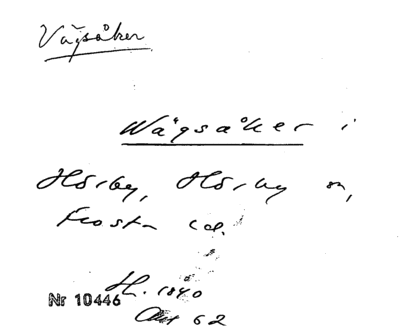 Vägsåker
Wägsåker i
Hörby, Hörby sn,
Frosta hd.
H. 1840
Nr 10446
Akt 62